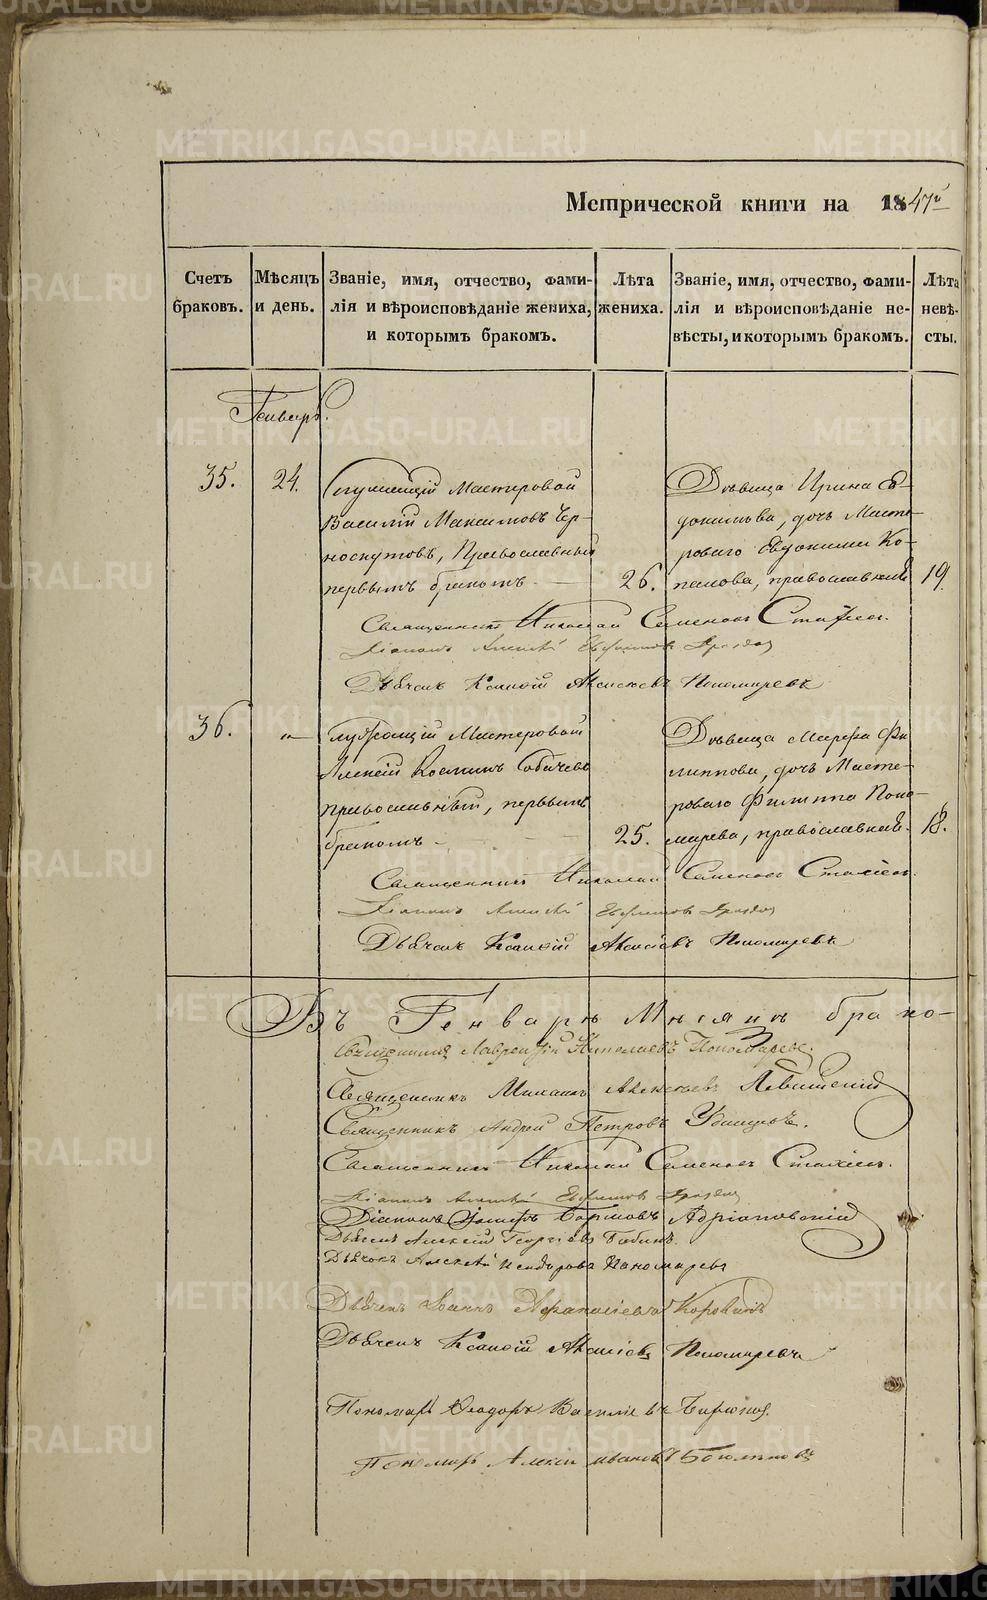 Метрической книги на 1847й
Счетъ браковъ.
Мѣсяцъ и день.
Званіе, имя, отчество, фами-
лія и вѣроисповѣданіе жениха,
и которымъ бракомъ.
Лѣта жениха.
Званіе, имя, отчество, фами-
лія и вѣроисповѣданіе не-
вѣсты, и которымъ бракомъ.
Лѣта невѣ-
сты.
Генварь.
35. 24.
Служащій Мастеровой
Василій Максимовъ Чер-
носкутовъ, Православный
первымъ бракомъ
26.
Дѣвица Ирина Ев-
докимова, дочь Масте-
роваго Евдокима Ко-
пылова, православная
19.
Священникъ Николай Семеновъ
Діаконъ Алексѣй
Дьячекъ Ксанѳій Пономаревъ
36. "
Служащій Мастеровой
Алексій Козминъ
православный, первымъ
бракомъ
25.
Дѣвица Марфа Фи-
липпова, дочь Масте-
роваго Филиппа Поно-
марева, православная.
18.
Священникъ Николай Семеновъ
Діаконъ Алексѣй
Дьячекъ Ксанѳій Пономаревъ
Въ Генварѣ Мѣсяцѣ брако-
Священникъ Лаврентій Николаевъ Пономаревъ.
Священникъ Михаилъ Алексѣевъ Левитскій
Священникъ Андрей Петровъ Удинцовъ.
Священникъ Николай Семеновъ
Діаконъ Алексѣй
Діаконъ Іосифъ Адріановскій
Дьячекъ Алексій Георгіевъ Бабинъ.
Дьячекъ Алексѣй Исидоровъ Пономаревъ
Дьячекъ Іоаннъ Аѳанасіевъ Коровинъ
Дьячекъ Ксанѳій Пономаревъ
Пономарь Ѳеодоръ Василіевъ Бирюковъ.
Пономарь Алексій Ивановъ
METRIKI.GASO-URAL.RU